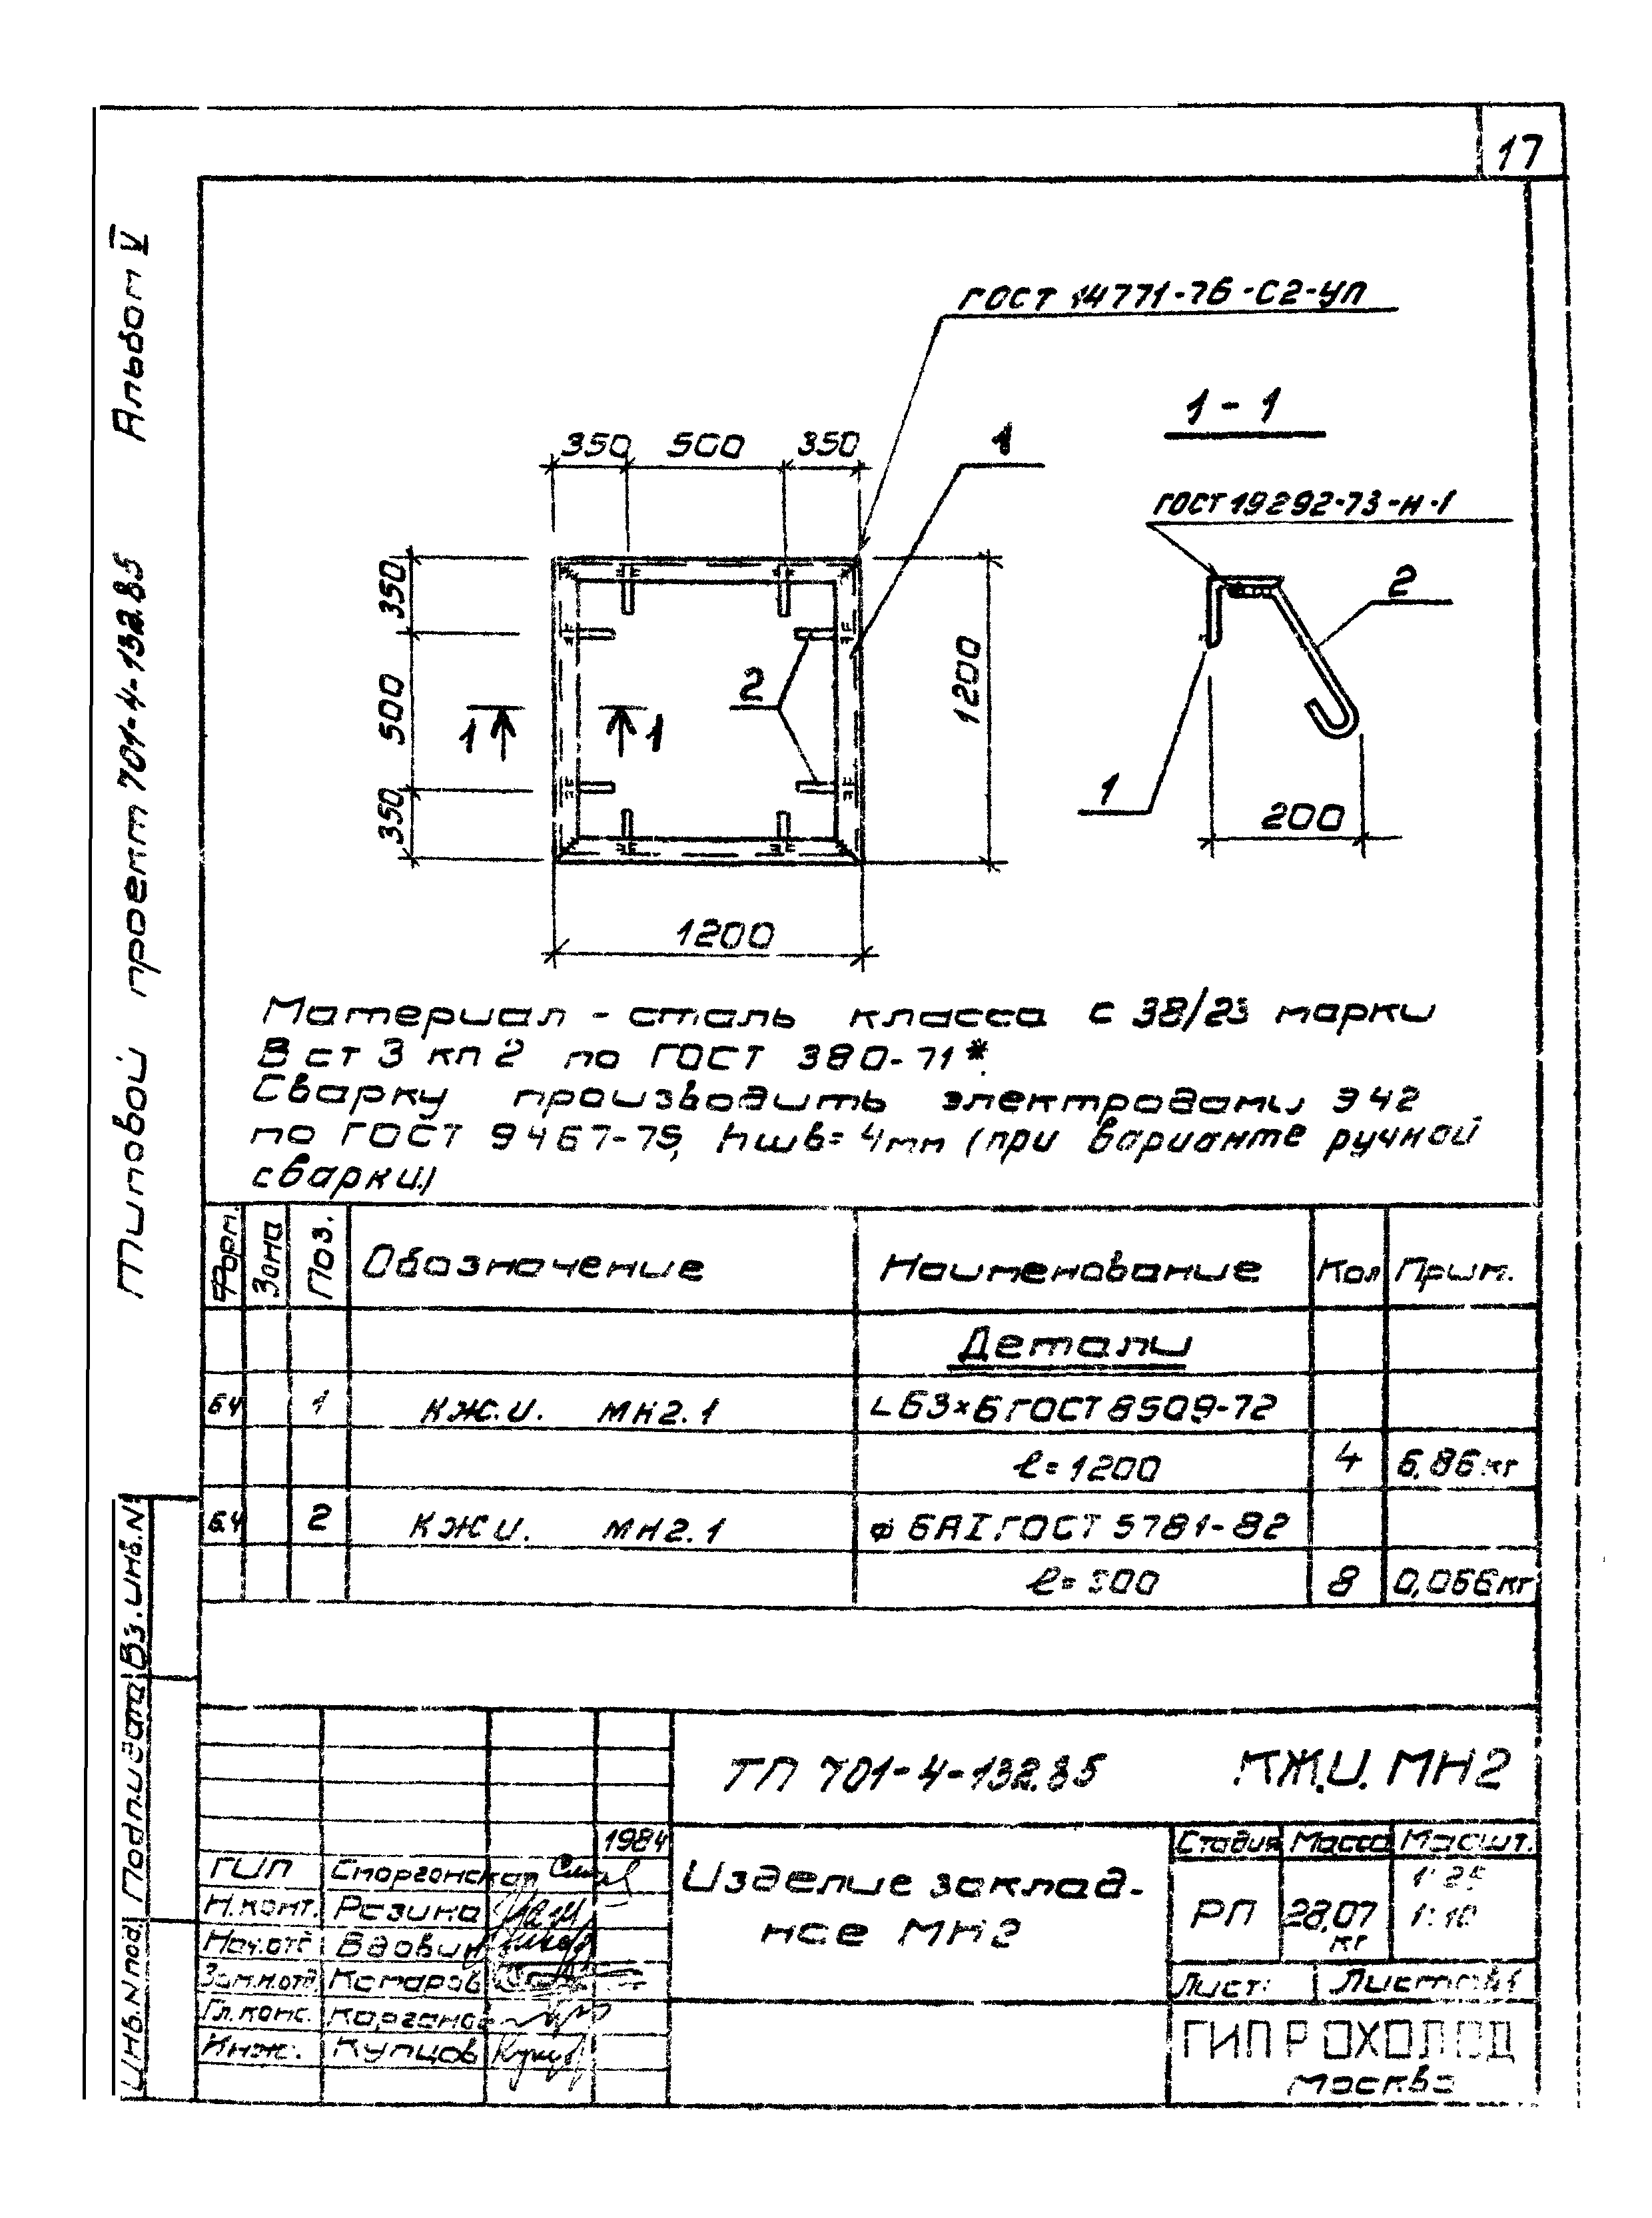 17
Альбом V
Типовой проект 701-4-132.85
ГОСТ 14771-76-С2-УП
1-1
350 500 350
1
ГОСТ 19292-73-Н-1
2
350
500
350
1200
2
1 1
1
200
1200
Материал - сталь класса С 38/23 марки
В ст 3 кп 2 по ГОСТ 380-71*.
Сварку производить электродами Э 42
по ГОСТ 9467-75, hшв= 4мм (при варианте ручной
сварки)
Форм. Зона Поз. Обозначение Наименование Кол Прим.
Детали
БЧ 1 КЖ.И. МН2.1 ∟63×6 ГОСТ 8509-72
ℓ=1200 4 6,86кг
Б.Ч 2 КЖИ. МН2.1 ⌀ 6АI.ГОСТ 5781-82
ℓ= 300 8 0,066кг
Вз.инв.N
Подп.и дата
Инв.N под.
ТП 701-4-132.85 КЖ.И. МН2
1984
Изделие заклад-
ное МН2
Стадия Масса Масшт.
РП 28,07 кг
1:25
1:10
Лист: Листов 1
ГИП Сморгонская
Н.конт. Разина
Нач.отд Вдовин
Зам.н.отд. Комаров
Гл.конс. Корганов
Инж. Купцов
ГИПРОХОЛОД
Москва